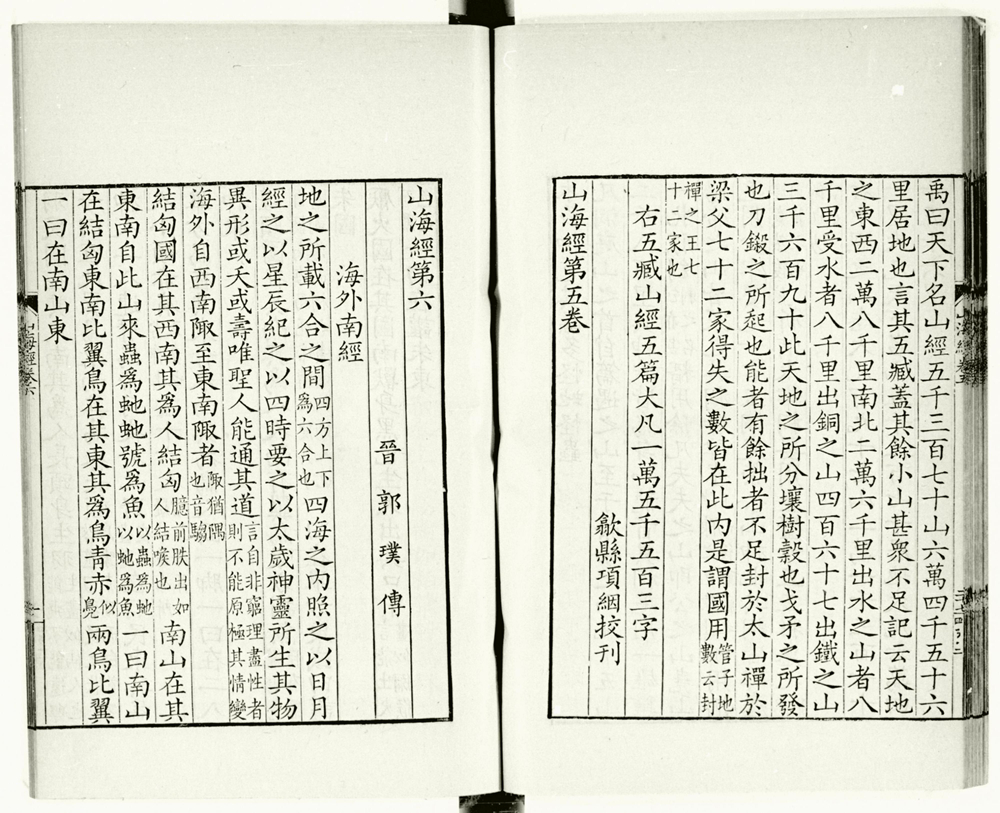 禹曰天下名山經五千三百七十山六萬四千五十六
里居地也言其五臧蓋其餘小山甚衆不足記云天地
之東西二萬八千里南北二萬六千里出水之山者八
千里受水者八千里出銅之山四百六十七出鐵之山
三千六百九十此天地之所分壤樹穀也戈矛之所發
也刀鎩之所起也能者有餘拙者不足封於太山禪於
梁父七十二家得失之數皆在此內是謂國用管子地數云封
禪之王七十二家也
右五臧山經五篇大凡一萬五千五百三字
歙縣項絪挍刊
山海經第五卷
山海經第六
海外南經
晉郭璞傳
地之所載六合之間四方上下爲六合也四海之內照之以日月
經之以星辰紀之以四時要之以太歲神靈所生其物
異形或夭或壽唯聖人能通其道言自非窮理盡性者則不能原極其情變
海外自西南陬至東南陬者陬猶隅也音騶
結匈國在其西南其爲人結匈臆前胅出如人結喉也南山在其
東南自此山來蟲爲虵虵號爲魚以蟲爲虵以虵爲魚一曰南山
在結匈東南比翼鳥在其東其爲鳥青赤似鳧兩鳥比翼
一曰在南山東
山海經卷五
山海經卷六